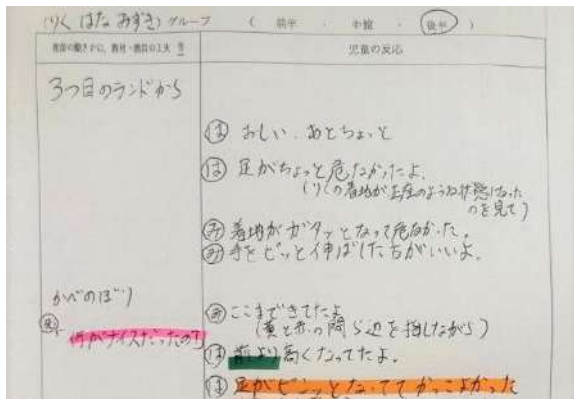 (りく はな みずき) グループ ( 前半 ・ 中盤 ・ 後半 )
教師の働きかけ、教材・教具の工夫 等
児童の反応
3つ目のランドから
は おしい、あとちょっと
は 足がちょっと危なかったよ。
(りくの着地が正座のような状態になった
のを見て)
み 着地がガタッとなって危なかった。
み 手をピッと伸ばした方がいいよ。
かべのぼり
み ここまできてたよ
(黄と赤の間ら辺を指しながら)
何がナイスだったの?
は 前より高くなってたよ。
は 足がピンッとなっててかっこよかった